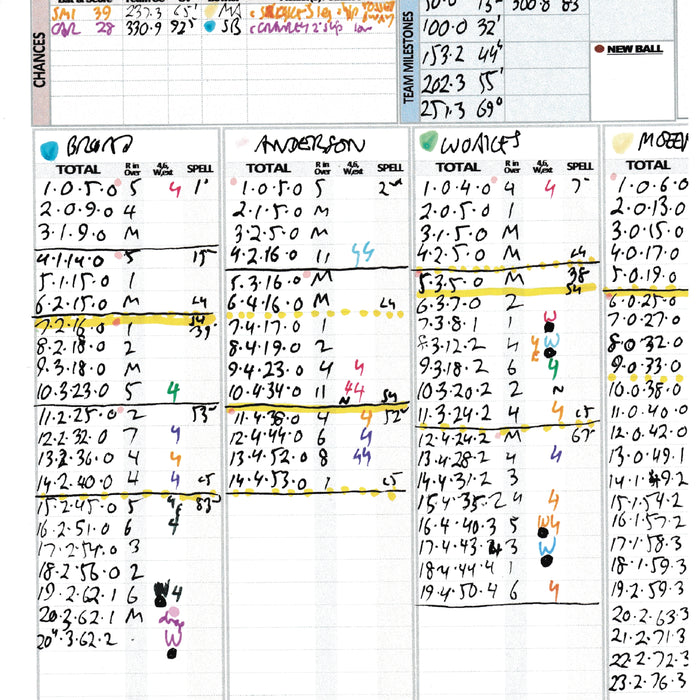 SMI 39 237.3 65' MA
CAR 28 330.9 92' SB
CHANCES
TEAM MILESTONES
100.0 32'
153.2 44'
202.3 55'
251.3 69'
NEW BALL
BROAD
TOTAL R in Over 4,6, W,ext SPELL
1.0.5.0 5 4 1'
2.0.9.0 4
3.1.9.0 M
4.1.14.0 5 15
5.1.15.0 1
6.2.15.0 M L4
7.2.16.0 1 S4 39
8.2.18.0 2
9.3.18.0 M
10.3.23.0 5 4
11.2.25.0 2 53
12.2.32.0 7 4
13.2.36.0 4 4
14.2.40.0 4 4 c5
15.2.45.0 5 4 83
16.2.51.0 6 4
17.2.54.0 3
18.2.56.0 2
19.2.62.1 6 W4
20.3.62.1 M drop
20'.3.62.2 . W
ANDERSON
TOTAL R in Over 4,6, W,ext SPELL
1.0.5.0 5 2
2.1.5.0 M
3.2.5.0 M
4.2.16.0 11 44
5.3.16.0 M
6.4.16.0 M L4
7.4.17.0 1
8.4.19.0 2
9.4.23.0 4 4
10.4.34.0 11 44 N S4
11.4.38.0 4 4 52
12.4.44.0 6 4
13.4.52.0 8 44
14.4.53.0 1 c5
WOAKES
TOTAL R in Over 4,6, W,ext SPELL
1.0.4.0 4 4 7
2.0.5.0 1
3.1.5.0 M
4.2.5.0 M L4
5.3.5.0 M 38 S4
6.3.7.0 2
7.3.8.1 1 W
8.3.12.2 4 4 W
9.3.18.2 6 4
10.3.20.2 2 N
11.3.24.2 4 4 c5
12.4.24.2 M 67
13.4.28.2 4 4
14.4.31.2 3
15.4.35.2 4 4
16.4.40.3 5 W4
17.4.43.4 3 W
18.4.44.4 1
19.4.50.4 6 4
TOTAL
1.0.6.0
2.0.13.0
3.0.15.0
4.0.17.0
5.0.19.0
6.0.25.0
7.0.27.0
8.0.32.0
9.0.33.0
10.0.38.0
11.0.40.0
12.0.42.0
13.0.49.1
14.1.49.2
15.1.54.2
16.1.57.2
17.1.58.3
18.1.59.3
19.2.59.3
20.2.63.3
21.2.71.3
22.2.72.3
23.2.76.3